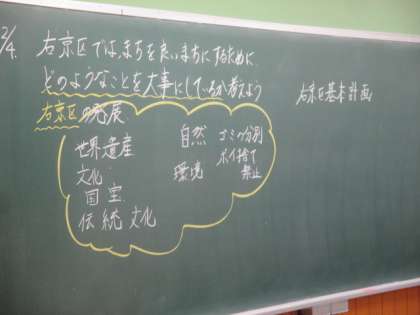 2/4. 右京区では、まちを良いまちにするために
どのようなことを大事にしているか考えよう
右京区の発展
世界遺産
文化
国宝
伝統文化
自然
環境
ゴミの分別
ポイ捨て
禁止
右京区基本計画